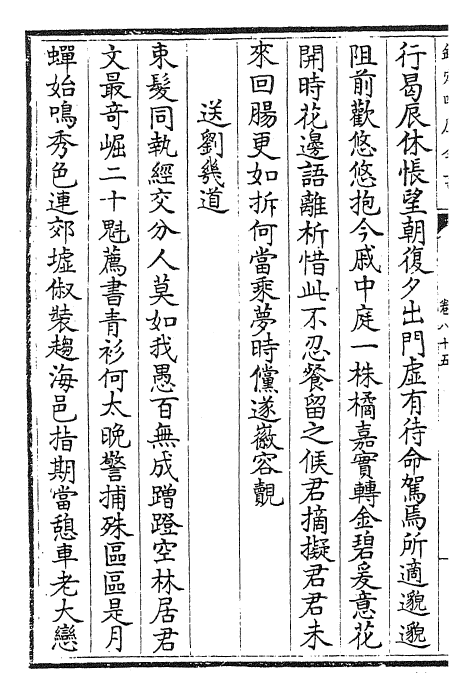 行曷辰休悵望朝復夕出門虛有待命駕焉所適邈邈
阻前歡悠悠抱今戚中庭一株橘嘉實轉金碧爰意花
開時花邊語離析惜此不忍餐留之候君摘擬君君未
來回腸更如拆何當乘夢時儻遂徽容覿
送劉㡬道
束髮同執經交分人莫如我愚百無成蹭蹬空林居君
文最奇崛二十魁薦書青衫何太晚警捕殊區區是月
蟬始鳴秀色連郊墟俶裝趨海邑指期當憩車老大戀
卷八十五